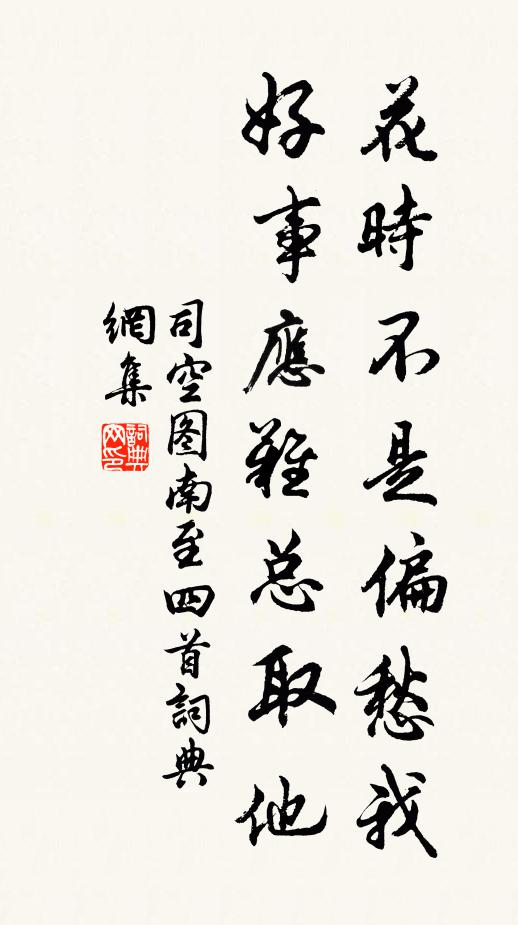 花時不是偏愁我
好事應難总取他
司空图南至四首詞典
網集
詞典
网印